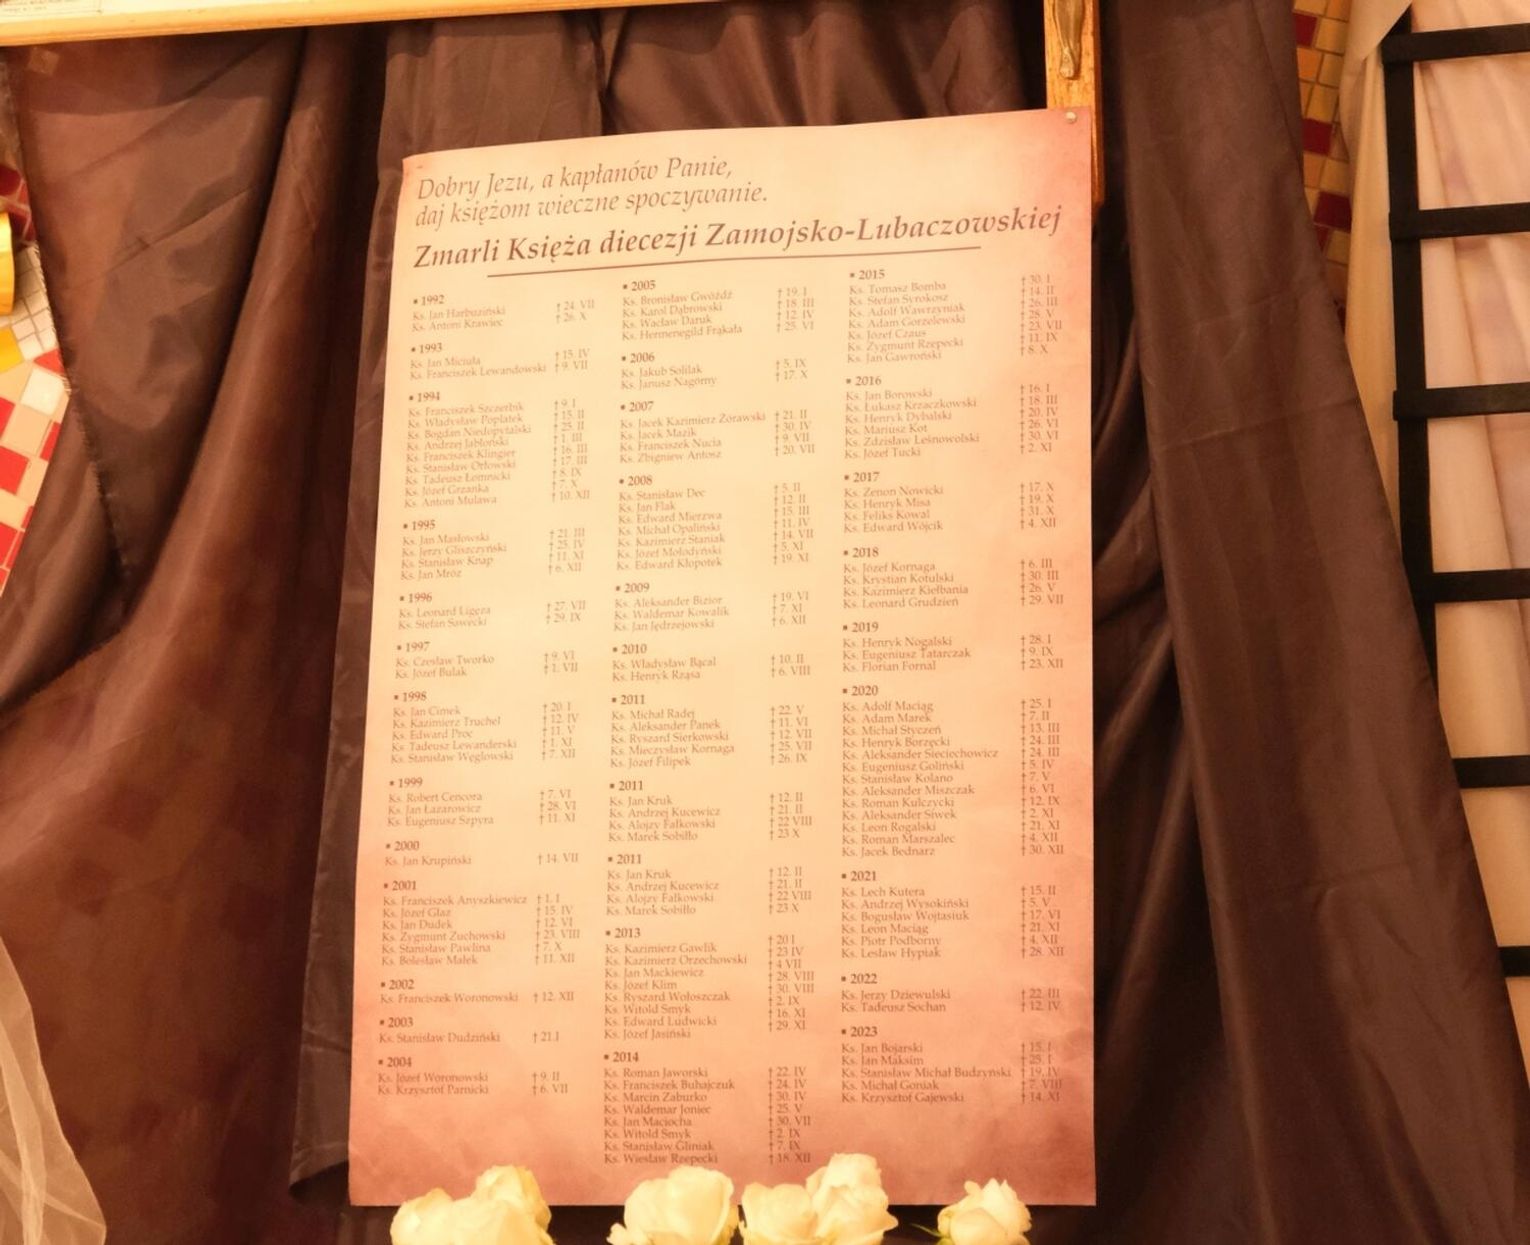 Dobry Jezu, a kapłanów Panie,
daj księżom wieczne spoczywanie.
Zmarli Księża diecezji Zamojsko-Lubaczowskiej
▪ 1992
Ks. Jan Harbuziński † 24. VII
Ks. Antoni Krawiec † 26. X
▪ 1993
Ks. Jan Miciuła † 15. IV
Ks. Franciszek Lewandowski † 9. VII
▪ 1994
Ks. Franciszek Szczerbik † 9. I
Ks. Władysław Poplatek † 15. II
Ks. Bogdan Niedopytalski † 25. II
Ks. Andrzej Jabłoński † 1. III
Ks. Franciszek Klingier † 16. III
Ks. Stanisław Orłowski † 17. III
Ks. Tadeusz Łomnicki † 8. IX
Ks. Józef Grzanka † 7. X
Ks. Antoni Mulawa † 10. XII
▪ 1995
Ks. Jan Masłowski † 21. III
Ks. Jerzy Gliszczyński † 25. IV
Ks. Stanisław Knap † 11. XI
Ks. Jan Mróz † 6. XII
▪ 1996
Ks. Leonard Ligęza † 27. VII
Ks. Stefan Sawecki † 29. IX
▪ 1997
Ks. Czesław Tworko † 9. VI
Ks. Józef Bulak † 1. VII
▪ 1998
Ks. Jan Cimek † 20. I
Ks. Kazimierz Truchel † 12. IV
Ks. Edward Proc † 11. V
Ks. Tadeusz Lewanderski † 1. XI
Ks. Stanisław Węglowski † 7. XII
▪ 1999
Ks. Robert Cencora † 7. VI
Ks. Jan Łazarowicz † 28. VI
Ks. Eugeniusz Szpyra † 11. XI
▪ 2000
Ks. Jan Krupiński † 14. VII
▪ 2001
Ks. Franciszek Anyszkiewicz † 1. I
Ks. Józef Głaz † 15. IV
Ks. Jan Dudek † 12. VI
Ks. Zygmunt Żuchowski † 23. VIII
Ks. Stanisław Pawlina † 7. X
Ks. Bolesław Małek † 11. XII
▪ 2002
Ks. Franciszek Woronowski † 12. XII
▪ 2003
Ks. Stanisław Dudziński † 21.I
▪ 2004
Ks. Józef Woronowski † 9. II
Ks. Krzysztof Parnicki † 6. VII
▪ 2005
Ks. Bronisław Gwóźdź † 19. I
Ks. Karol Dąbrowski † 18. III
Ks. Wacław Daruk † 12. IV
Ks. Hermenegild Frąkała † 25. VI
▪ 2006
Ks. Jakub Solilak † 5. IX
Ks. Janusz Nagórny † 17. X
▪ 2007
Ks. Jacek Kazimierz Żórawski † 21. II
Ks. Jacek Mazik † 30. IV
Ks. Franciszek Nucia † 9. VII
Ks. Zbigniew Antosz † 20. VII
▪ 2008
Ks. Stanisław Dec † 5. II
Ks. Jan Flak † 12. II
Ks. Edward Mierzwa † 15. III
Ks. Michał Opaliński † 11. IV
Ks. Kazimierz Staniak † 14. VII
Ks. Józef Mołodyński † 5. XI
Ks. Edward Kłopotek † 19. XI
▪ 2009
Ks. Aleksander Bizior † 19. VI
Ks. Waldemar Kowalik † 7. XI
Ks. Jan Jędrzejowski † 6. XII
▪ 2010
Ks. Władysław Bącal † 10. II
Ks. Henryk Rząsa † 6. VIII
▪ 2011
Ks. Michał Radej † 22. V
Ks. Aleksander Panek † 11. VI
Ks. Ryszard Sierkowski † 12. VII
Ks. Mieczysław Kornaga † 25. VII
Ks. Józef Filipek † 26. IX
▪ 2011
Ks. Jan Kruk † 12. II
Ks. Andrzej Kucewicz † 21. II
Ks. Alojzy Fałkowski † 22 VIII
Ks. Marek Sobiłło † 23 X
▪ 2011
Ks. Jan Kruk † 12. II
Ks. Andrzej Kucewicz † 21. II
Ks. Alojzy Fałkowski † 22 VIII
Ks. Marek Sobiłło † 23 X
▪ 2013
Ks. Kazimierz Gawlik † 20 I
Ks. Kazimierz Orzechowski † 23 IV
Ks. Jan Mackiewicz † 4 VII
Ks. Józef Klim † 28. VIII
Ks. Ryszard Wołoszczak † 30. VIII
Ks. Witold Smyk † 2. IX
Ks. Edward Ludwicki † 16. XI
Ks. Józef Jasiński † 29. XI
▪ 2014
Ks. Roman Jaworski † 22. IV
Ks. Franciszek Buhajczuk † 24. IV
Ks. Marcin Zaburko † 30. IV
Ks. Waldemar Joniec † 25. V
Ks. Jan Maciocha † 30. VII
Ks. Witold Smyk † 2. IX
Ks. Stanisław Gliniak † 7. IX
Ks. Wiesław Rzepecki † 18. XII
▪ 2015
Ks. Tomasz Bomba † 30. I
Ks. Stefan Syrokosz † 14. II
Ks. Adolf Wawrzyniak † 26. III
Ks. Adam Gorzelewski † 28. V
Ks. Józef Czaus † 23. VII
Ks. Zygmunt Rzepecki † 11. IX
Ks. Jan Gawroński † 8. X
▪ 2016
Ks. Jan Borowski † 16. I
Ks. Łukasz Krzaczkowski † 18. III
Ks. Henryk Dybalski † 20. IV
Ks. Mariusz Kot † 26. VI
Ks. Zdzisław Leśnowolski † 30. VI
Ks. Józef Tucki † 2. XI
▪ 2017
Ks. Zenon Nowicki † 17. X
Ks. Henryk Misa † 19. X
Ks. Feliks Kowal † 31. X
Ks. Edward Wójcik † 4. XII
▪ 2018
Ks. Józef Kornaga † 6. III
Ks. Krystian Kotulski † 30. III
Ks. Kazimierz Kiełbania † 26. V
Ks. Leonard Grudzień † 29. VII
▪ 2019
Ks. Henryk Nogalski † 28. I
Ks. Eugeniusz Tatarczak † 9. IX
Ks. Florian Fornal † 23. XII
▪ 2020
Ks. Adolf Maciąg † 25. I
Ks. Adam Marek † 7. II
Ks. Michał Styczeń † 13. III
Ks. Henryk Borzęcki † 24. III
Ks. Aleksander Sieciechowicz † 24. III
Ks. Eugeniusz Goliński † 5. IV
Ks. Stanisław Kolano † 7. V
Ks. Aleksander Miszczak † 6. VI
Ks. Roman Kulczycki † 12. IX
Ks. Aleksander Siwek † 2. XI
Ks. Leon Rogalski † 21. XI
Ks. Roman Marszalec † 4. XII
Ks. Jacek Bednarz † 30. XII
▪ 2021
Ks. Lech Kutera † 15. II
Ks. Andrzej Wysokiński † 5. V
Ks. Bogusław Wojtasiuk † 17. VI
Ks. Leon Maciąg † 21. XI
Ks. Piotr Podborny † 4. XII
Ks. Lesław Hypiak † 28. XII
▪ 2022
Ks. Jerzy Dziewulski † 22. III
Ks. Tadeusz Sochan † 12. IV
▪ 2023
Ks. Jan Bojarski † 15. I
Ks. Jan Maksim † 25. I
Ks. Stanisław Michał Budzyński † 19. IV
Ks. Michał Goniak † 7. VIII
Ks. Krzysztof Gajewski † 14. XI